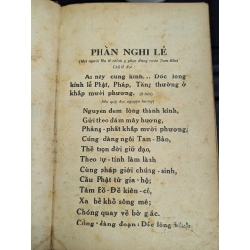 PHẦN NGHI LỄ
Ai nấy cung kính... Dốc lòng
kính lễ Phật, Pháp, Tăng thường ở
khắp mười phương.
Nguyện đem lòng thành kính,
Gửi theo đám mây hương,
Phảng-phất khắp mười phương,
Cúng dàng ngôi Tam-Bảo,
Thề trọn đời giữ đạo,
Theo tự-tính làm lành
Cùng pháp giới chúng-sinh,
Cầu Phật từ gia-hộ;
Tâm Bồ-Đề kiên-cố,
Xa bể khổ sông mê;
Chóng quay về bờ gác.
Cúng-dàng đoạn: Dốc lòng